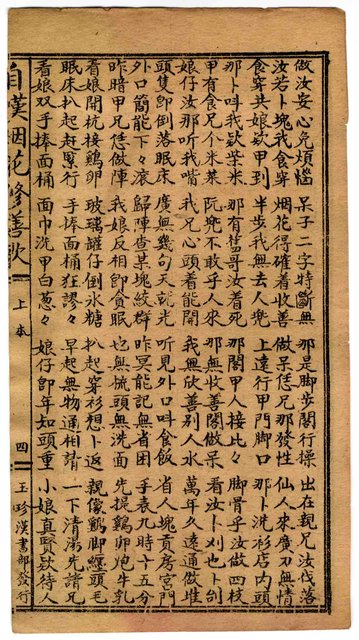 做汝安心免煩惱　呆子二字特斷無　那是脚步閣行操　出在親兄汝伐落
汝若卜塊我食穿　烟花得確着收善　做呆恁兄那發性　仙人來廣刀無情
食穿共娘欵甲到　半步我無去人兜　上遠行甲門脚口　那卜洗衫店內頭
那卜叫我欵柴米　那有哲哥汝着死　那閣甲人接比々　脚骨乎汝做四枝
甲有食兄个米菜　阮兜不敢乎人來　那無收善閣做呆　看汝卜刈也卜刣
娘仔汝那听我嘴　我兄心頭着能開　我無欣善別人水　萬年久遠通做堆
頭隻卽倒落眠床　度無幾句天就光　听見外口叫食飯　省人塊貢房宮門
外口簡能下々滾　歸陣查某塊絞群　昨冥能記無省困　手表九時十五分
昨暗甲兄恁做陣　我娘反相卽貪眠　也無梳頭無洗面　先提鷄卵泡牛乳
看娘開杭接鷄卵　玻璃罐仔倒氷糖　扒起穿衫想卜返　親像鷄脚經頭毛
眠床扒起赶緊行　手捧面桶狂謬々　早起無物通相請　一下清湯先請兄
看娘双手捧面桶　面巾洗甲白葱々　娘仔卽年如頭重　小娘真賢欵待人
自漢烟花修善歌　上本　四　玉珍漢書部發行